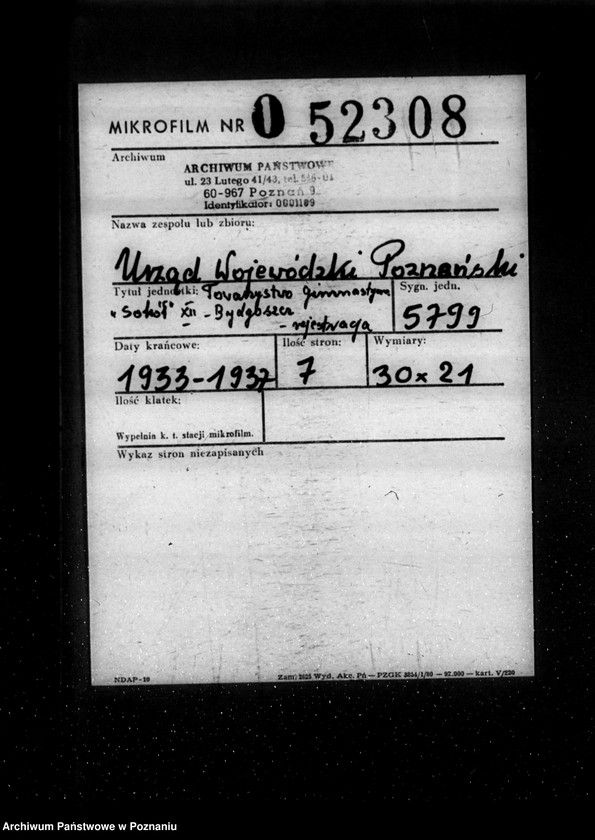 MIKROFILM NR 0 52308
Archiwum
ARCHIWUM PAŃSTWOWE
ul. 23 Lutego 41/43, tel.
60-967 Poznań 9
Identyfikator: 0001109
Nazwa zespołu lub zbioru:
Urząd Wojewódzki Poznański
Tytuł jednostki: Towarzystwo Gimnastyczne
"Sokół" XII - Bydgoszcz
- rejestracja
Sygn. jedn.
5799
Daty krańcowe:
1933-1937
Ilość stron:
7
Wymiary:
30x21
Ilość klatek:
Wypełnia k. t. stacji mikrofilm.
Wykaz stron niezapisanych
NDAP-10
Zam: 2625 Wyd. Akc. Pń — PZGK 3834/1/80 — 92.000 — kart. V/220
Archiwum Państwowe w Poznaniu